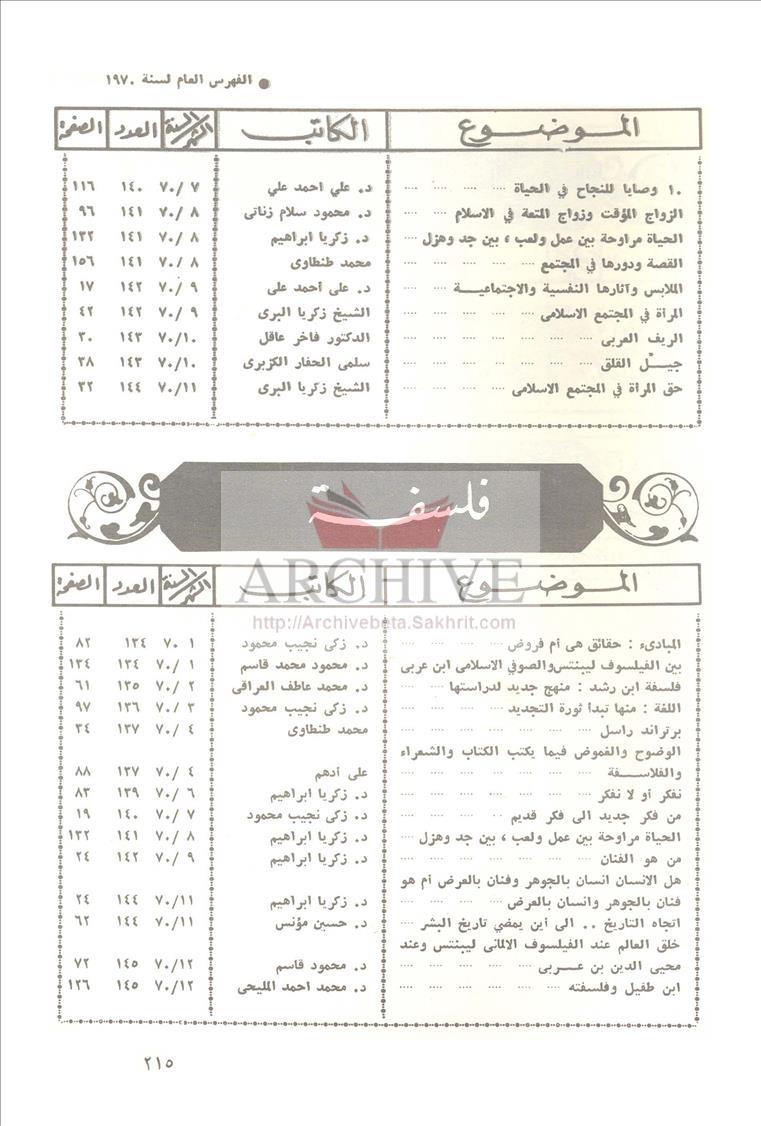 ● الفهرس العام لسنة ١٩٧٠
الموضوع الكاتب الشهر/السنة العدد الصفحة
١٠ وصايا للنجاح في الحياة .... .... .... .... د. علي احمد علي ٧ /٧٠ ١٤٠ ١١٦
الزواج المؤقت وزواج المتعة في الاسلام .... .... د. محمود سلام زناتى ٨ /٧٠ ١٤١ ٩٦
الحياة مراوحة بين عمل ولعب ، بين جد وهزل .... د. زكريا ابراهيم ٨ /٧٠ ١٤١ ١٣٢
القصة ودورها في المجتمع .... .... .... .... محمد طنطاوى ٨ /٧٠ ١٤١ ١٥٦
الملابس وآثارها النفسية والاجتماعيــــة .... .... د. على أحمد على ٩ /٧٠ ١٤٢ ١٧
المرأة في المجتمع الاسلامى .... .... .... .... الشيخ زكريا البرى ٩ /٧٠ ١٤٢ ٤٢
الريف العربى .... .... .... .... .... .... الدكتور فاخر عاقل ٧٠/١٠ ١٤٣ ٣٠
جيــل القلق .... .... .... .... .... .... سلمى الحفار الكزبرى ٧٠/١٠ ١٤٣ ٣٨
حق المرأة في المجتمع الاسلامى .... .... .... الشيخ زكريا البرى ٧٠/١١ ١٤٤ ٣٢
فلسفـــة
ARCHIVE
http://Archivebeta.Sakhrit.com
الموضوع الكاتب الشهر/السنة العدد الصفحة
المبادىء : حقائق هى أم فروض .... .... .... د. زكى نجيب محمود ١ ٧٠ ١٣٤ ٨٢
بين الفيلسوف ليبنتس والصوفي الاسلامى ابن عربى د. محمود محمد قاسم ١ /٧٠ ١٣٤ ١٣٤
فلسفة ابن رشد : منهج جديد لدراستها .... .... د. محمد عاطف العراقى ٢ /٧٠ ١٣٥ ٦١
اللغة : منها تبدأ ثورة التجديد .... .... .... د. زكى نجيب محمود ٣ /٧٠ ١٣٦ ٩٧
برتراند راسل .... .... .... .... .... .... محمد طنطاوى ٤ /٧٠ ١٣٧ ٣٤
الوضوح والغموض فيما يكتب الكتاب والشعراء
والفلاســـفة .... .... .... .... .... .... على أدهم ٤ /٧٠ ١٣٧ ٨٨
نفكر أو لا نفكر .... .... .... .... .... د. زكريا ابراهيم ٦ /٧٠ ١٣٩ ٨٣
من فكر جديد الى فكر قديم .... .... .... د. زكى نجيب محمود ٧ /٧٠ ١٤٠ ١٩
الحياة مراوحة بين عمل ولعب ، بين جد وهزل .... د. زكريا ابراهيم ٨ /٧٠ ١٤١ ١٣٢
من هو الفنان .... .... .... .... .... .... د. زكريا ابراهيم ٩ /٧٠ ١٤٢ ٢٤
هل الانسان انسان بالجوهر وفنان بالعرض أم هو
فنان بالجوهر وانسان بالعرض .... .... .... د. زكريا ابراهيم ٧٠/١١ ١٤٤ ٢٤
اتجاه التاريخ .. الى أين يمضي تاريخ البشر .... د. حسين مؤنس ٧٠/١١ ١٤٤ ٦٢
خلق العالم عند الفيلسوف الالمانى ليبنتس وعند
محيى الدين بن عـــربى .... .... .... .... د. محمود قاسم ٧٠/١٢ ١٤٥ ٧٢
ابن طفيل وفلسفته .... .... .... .... .... د. محمد احمد المليحى ٧٠/١٢ ١٤٥ ١٢٦
٢١٥